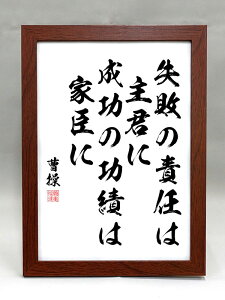 失敗の責任は
主君に
成功の功績は
家臣に
曹操